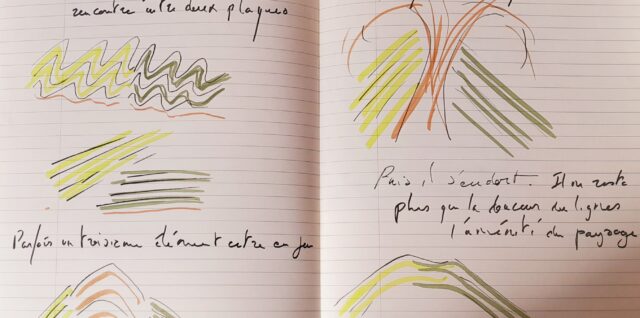 rencontre entre deux plaques
Parfois un troisième élément entre en jeu
Puis il s'endort. Il ne reste
plus que la douceur des lignes
l'aménité du paysage